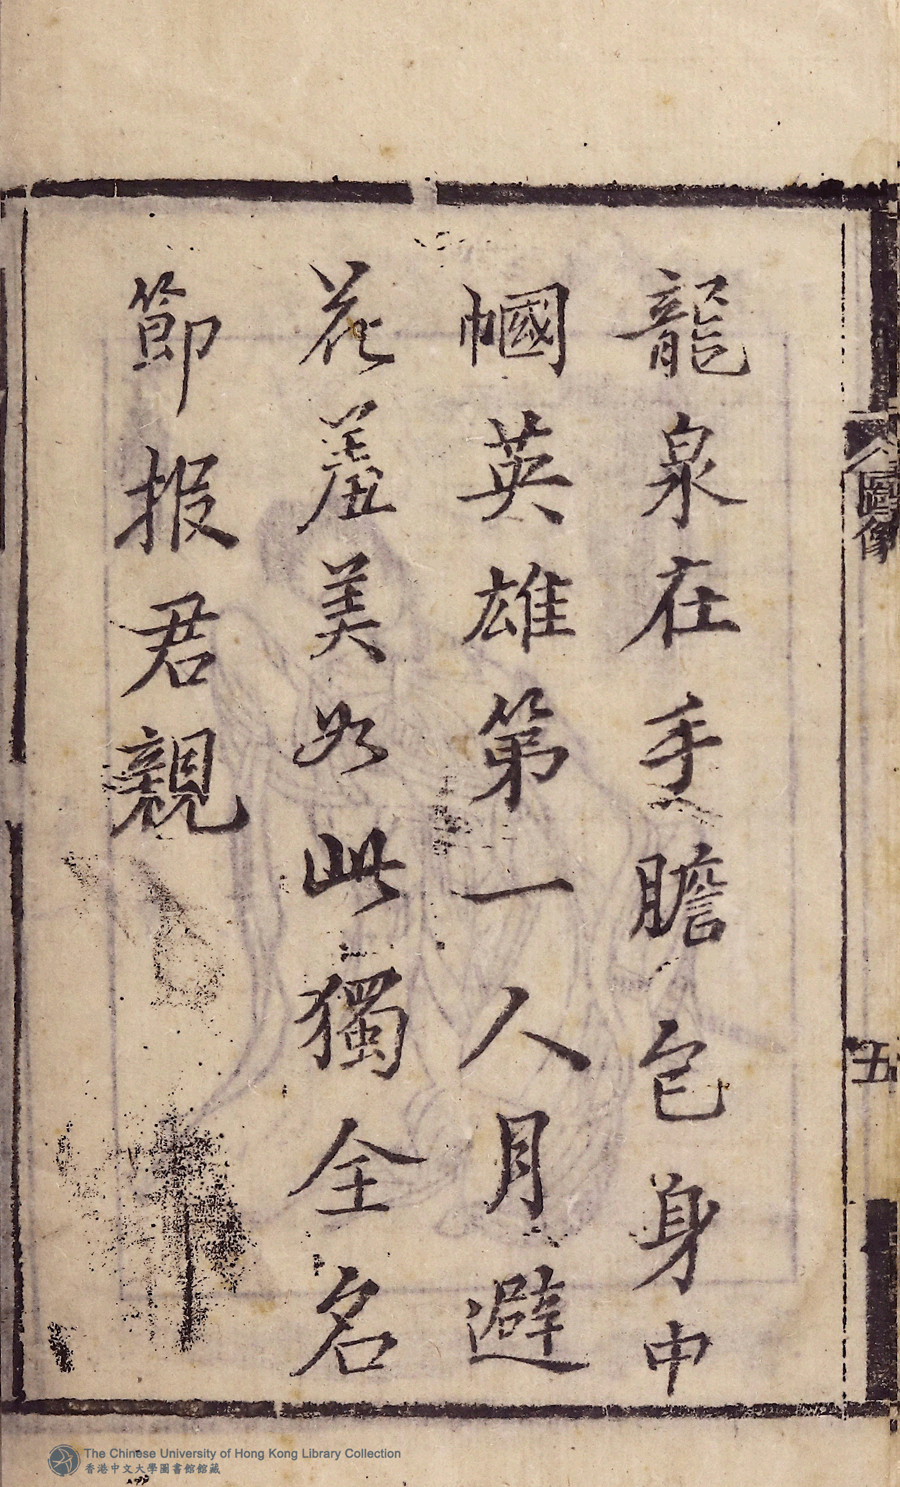 龍泉在手膽包身申
幗英雄第一人月避
花羞美如此獨全名
節報君親
圖像
五
The Chinese University of Hong Kong Library Collection
香港中文大學圖書館館藏